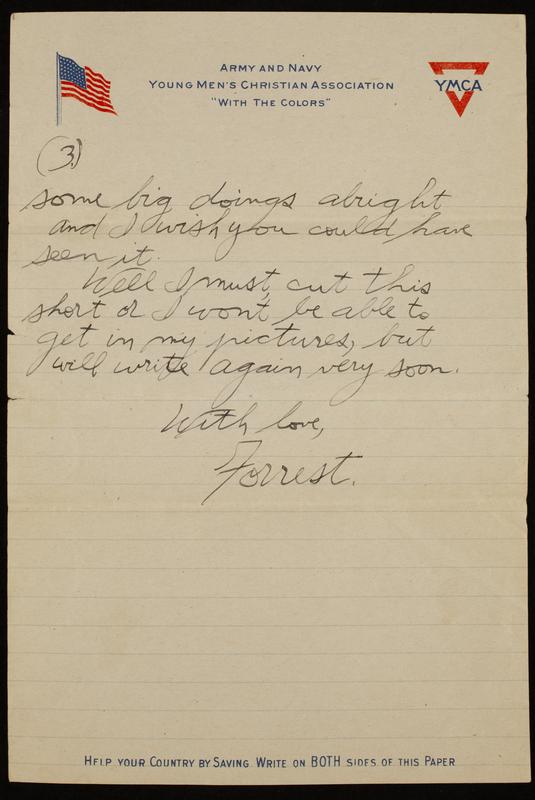 ARMY AND NAVY
YOUNG MEN'S CHRISTIAN ASSOCIATION
"WITH THE COLORS"
YMCA
(3)
some big doings alright
and I wish you could have
seen it.
Well I must cut this
short or I won't be able to
get in my pictures, but
will write again very soon.
With love,
Forrest.
HELP YOUR COUNTRY BY SAVING. WRITE ON BOTH SIDES OF THIS PAPER